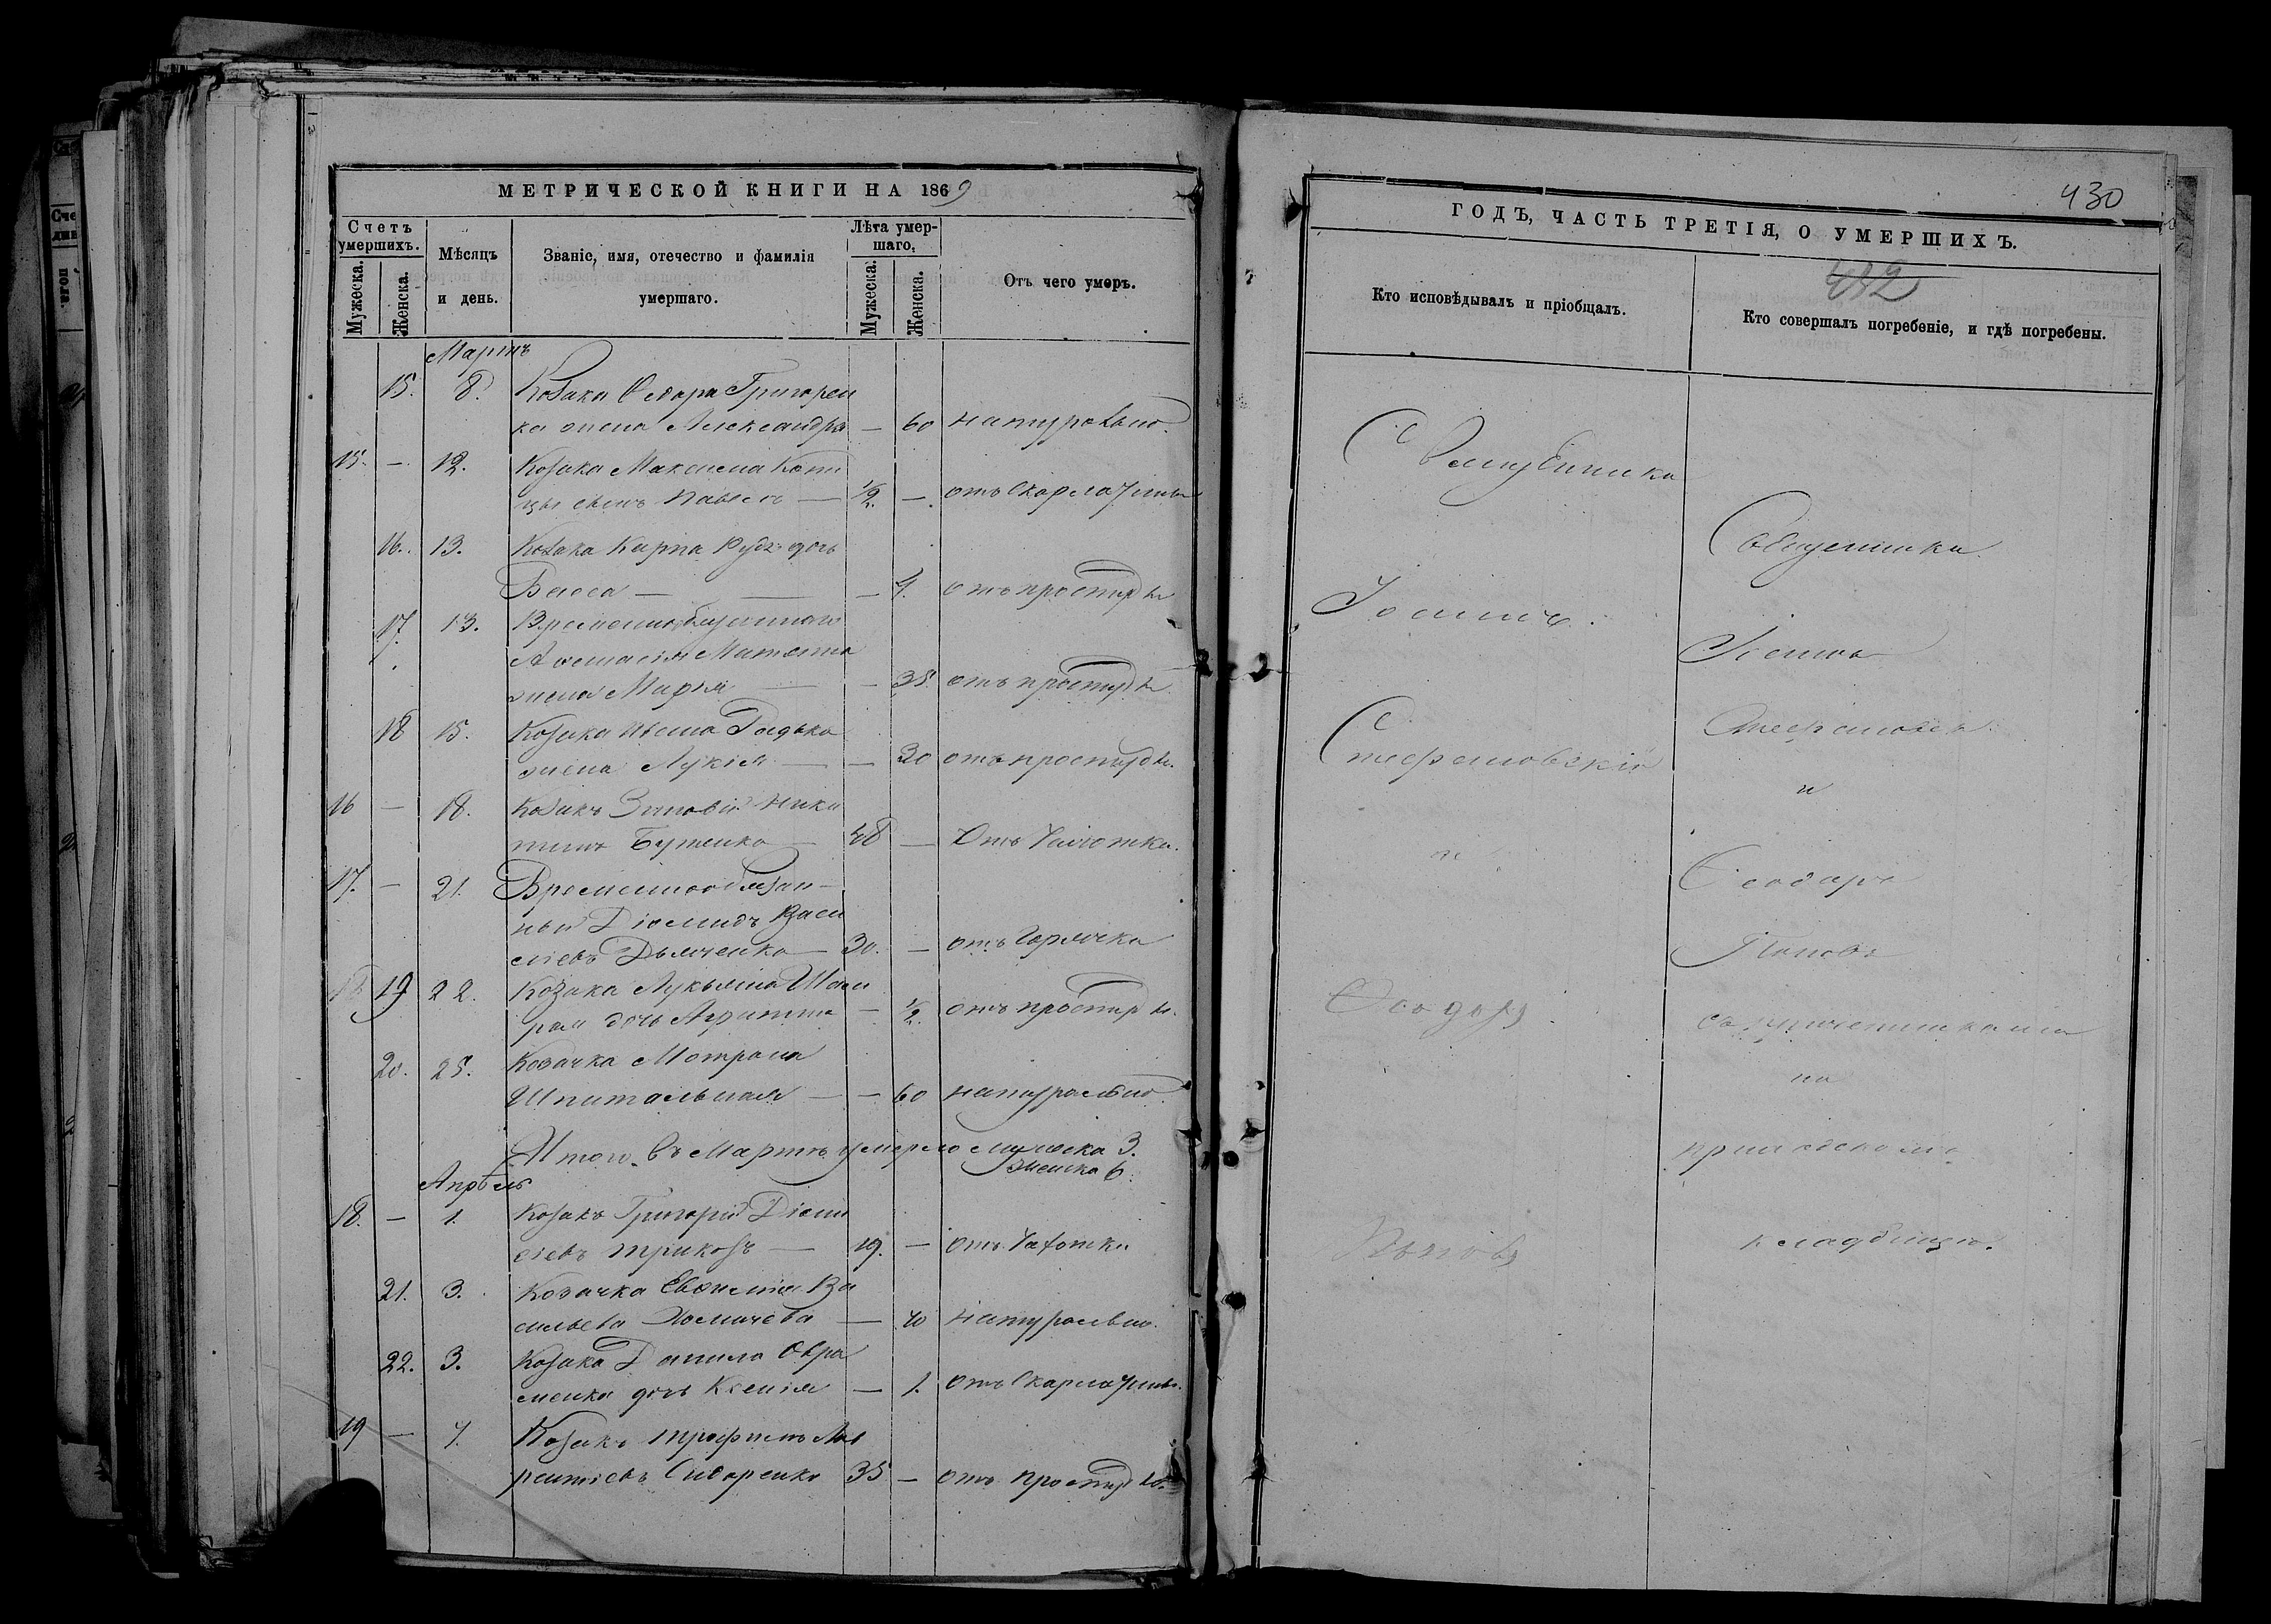 МЕТРИЧЕСКОЙ КНИГИ НА 1869
Счетъ умершихъ.
Мужеска.
Женска.
Мѣсяцъ и день.
Званіе, имя, отечество и фамилія умершаго.
Лѣта умершаго.
Мужеска.
Женска.
Отъ чего умеръ.
Мартъ
15. 8. Козака Ѳедора Григорен
ка жена Александра — 60 натурально.
15. — 12. Козака Максима
цы сынъ Павелъ — 1/2. — отъ Скарлатины
16. 13. Козака Карпа дочь
Васса — — 4. отъ простуды
17. 13. Временнообязаннаго
Аѳанасія
жена Марія — — 35. отъ простуды
18 15. Козака Ивана Гадька
жена Лукія — — 30 отъ простуды.
16 — 18. Козакъ Зиновій Ники
тинъ Бутенко — 48 — Отъ Чахотки.
17. — 21. Временнообязан-
ный Діомидъ Васи
ліевъ Дьяченко — 30. — отъ Горячки
19 22. Козака Лукьяна
дочь — 1/2. отъ простуды.
20. 25. Козачка Мотрона
Шпитальная — — 60 натурально.
Итого въ Мартѣ умерло мужеска 3.
Женска 6.
Апрѣль
18. — 1. Козакъ Григорій Діони
сіевъ Трикозъ — 19. — отъ Чахотки
21. 3. Козачка Евѳимія Ва
сильева — 70 натурально.
22. 3. Козака Данила Авра
менка дочь Ксенія — 1. отъ Скарлатины.
19 — 7. Козакъ Трофимъ Лав
рентіевъ Сидоренко 35 — отъ простуды.
430
ГОДЪ, ЧАСТЬ ТРЕТІЯ, О УМЕРШИХЪ.
Кто исповѣдывалъ и пріобщалъ.
Кто совершалъ погребеніе, и гдѣ погребены.
Священники
Іоаннъ
Стефановскій
и
Ѳеодоръ
Поповъ
Священники
Іоаннъ
Стефановскій
и
Ѳеодоръ
Поповъ
съ причетниками
на
приходскомъ
кладбищѣ.